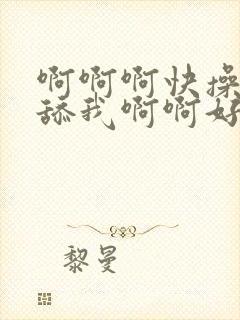 啊啊啊快操
舔我啊啊好
黎曼